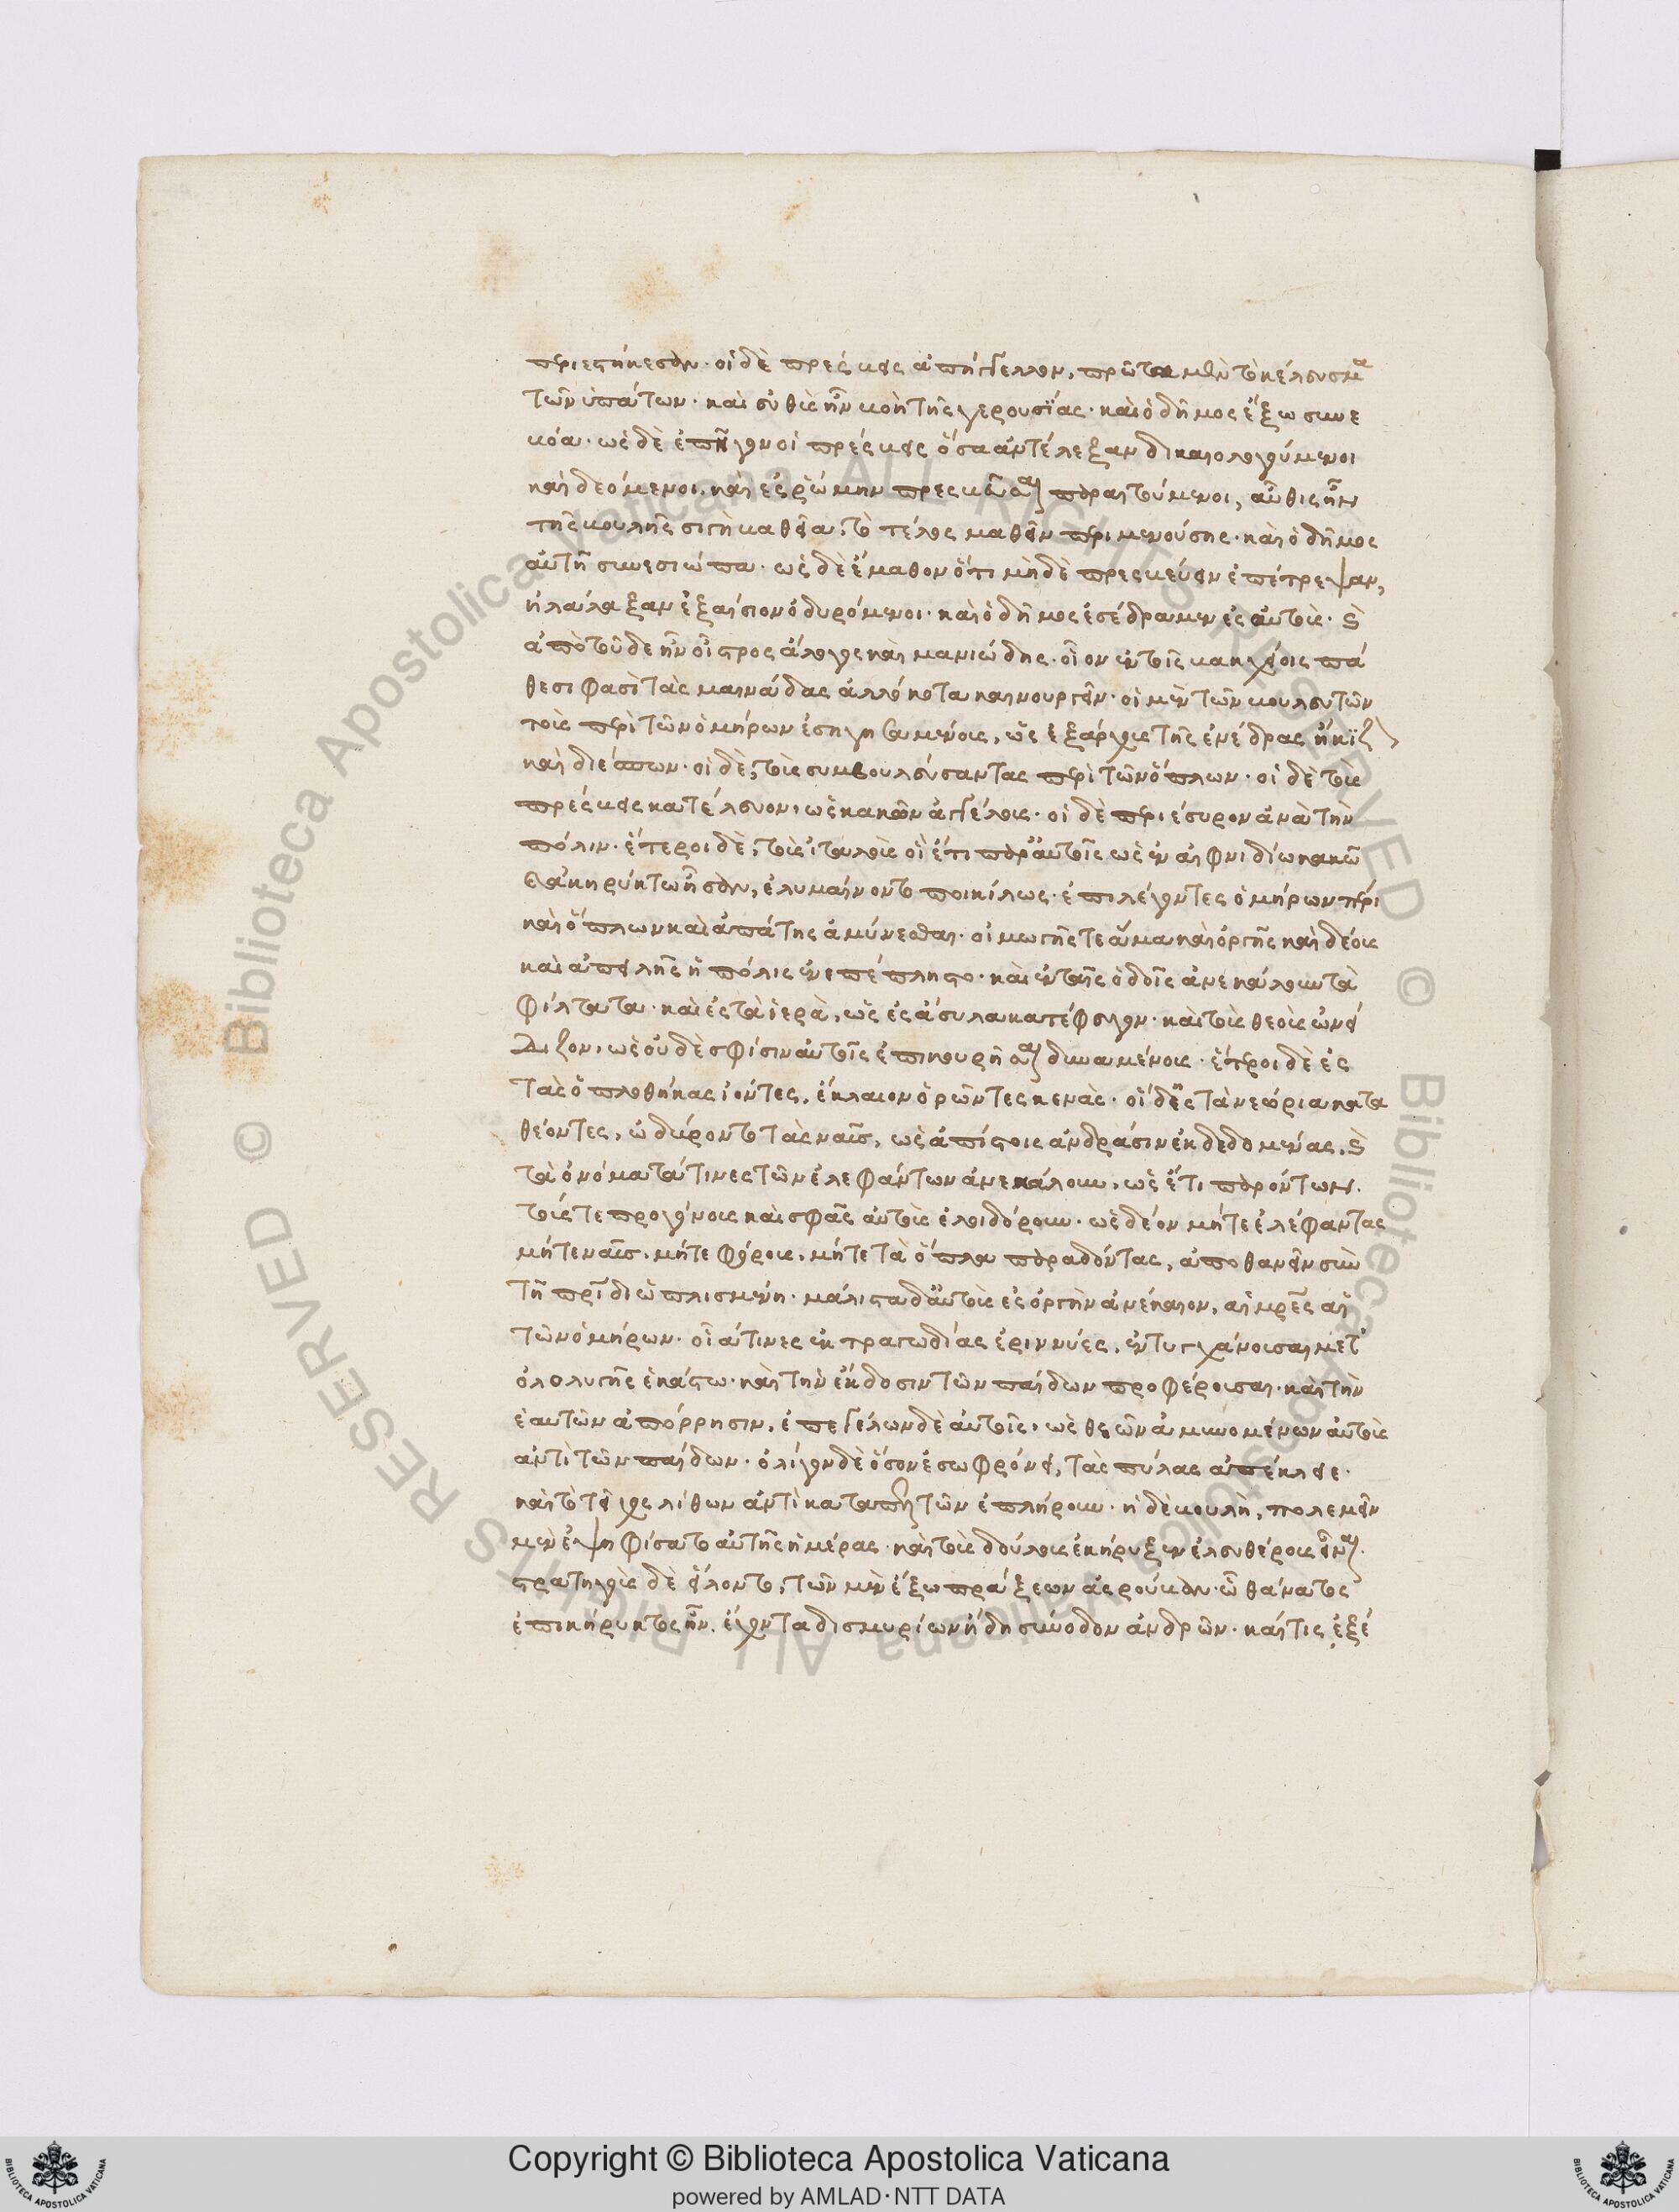 περιεστήκεσαν. οἱ δὲ πρέσβεις ἀπήγγελλον, πρῶτα μὲν τὸ κέλευσμα
τῶν ὑπάτων. καὶ εὐθὺς ἦν βοὴ τῆς γερουσίας. καὶ ὁ δῆμος ἔξω συνε
βόα. ὡς δὲ ἐπῆγον οἱ πρέσβεις ὅσα ἀντέλεξαν δικαιολογούμενοι
καὶ δεόμενοι. καὶ ἐς ῥώμην πρεσβεῦσαι παραιτούμενοι, αὖθις ἦν
τῆς βουλῆς σιγὴ βαθεῖα. τὸ τέλος μαθεῖν περιμενούσης. καὶ ὁ δῆμος
αὐτῇ συνεσιώπα. ὡς δὲ ἔμαθον ὅτι μὴ δὲ πρεσβεύειν ἐπέτρεψαν,
ἠλάλαξαν ἐξαίσιον ὀδυρόμενοι. καὶ ὁ δῆμος ἐσέδραμεν ἐς αὐτοὺς. καὶ
ἀπὸ τοῦδε ἦν οἶστρος ἄλογος καὶ μανιώδης. οἷον ἐν τοῖς βακχείοις πά
θεσι φασὶ τὰς μαινάδας ἀλλόκοτα καινουργεῖν. οἱ μὲν τῶν βουλευτῶν
τοὺς περὶ τῶν ὁμήρων ἐσηγησαμένους, ὡς ἐξάρχους τῆς ἐνέδρας ᾐκίζοντο
καὶ διέσπων. οἱ δὲ, τοὺς συμβουλεύσαντας περὶ τῶν ὅπλων. οἱ δὲ τοὺς
πρέσβεις κατέλευον, ὡς κακῶν ἀγγέλους. οἱ δὲ περιέσυρον ἀνὰ τὴν
πόλιν. ἕτεροι δὲ, τοὺς ἰταλοὺς οἳ ἔτι παρ' αὐτοῖς ὡς ἐν αἰφνιδίω κακῶ
καὶ ἀκηρύκτω ἦσαν, ἐλυμαίνοντο ποικίλως. ἐπιλέγοντες ὁμήρων πέρι
καὶ ὅπλων καὶ ἀπάτης ἀμύνεσθαι. οἰμωγῆς τε ἅμα καὶ ὀργῆς καὶ δέους
καὶ ἀπειλῆς ἡ πόλις ἐνεπέπληστο. καὶ ἐν ταῖς ὁδοῖς ἀνεκάλουν τὰ
φίλτατα. καὶ ἐς τὰ ἱερὰ, ὡς ἐς ἄσυλα κατέφευγον. καὶ τοὺς θεοὺς ὠνεί
διζον, ὡς οὐδὲ σφίσιν αὐτοῖς ἐπικουρῆσαι δυναμένους. ἕτεροι δὲ ἐς
τὰς ὁπλοθήκας ἰόντες, ἔκλαιον ὁρῶντες κενὰς. οἱ δ' ἐς τὰ νεώρια κατα
θέοντες, ὠδύροντο τὰς ναῦς, ὡς ἀπίστοις ἀνδράσιν ἐκδεδομένας. καὶ
τὰ ὀνόματά τινες τῶν ἐλεφάντων ἀνεκάλουν, ὡς ἔτι παρόντων.
τούς τε προγόνους καὶ σφᾶς αὐτοὺς ἐλοιδόρουν. ὡς δέον μήτε ἐλέφαντας
μήτε ναῦς, μήτε φόρους, μήτε τὰ ὅπλα παραδόντας, ἀποθανεῖν σὺν
τῇ πατρίδι ὡπλισμένῃ. μάλιστα δ' αὐτοὺς ἐς ὀργὴν ἀνέκαιον, αἱ μητέρες αἱ
τῶν ὁμήρων. οἷά τινες ἐκ τραγωδίας ἐριννύες, ἐντυγχάνουσαι μετ'
ὀλολυγῆς ἑκάστω. καὶ τὴν ἔκδοσιν τῶν παίδων προφέρουσαι. καὶ τὴν
ἑαυτῶν ἀπόρρησιν, ἐπεγέλων δὲ αὐτοῖς, ὡς θεῶν ἀμυνομένων αὐτοὺς
ἀντὶ τῶν παίδων. ὀλίγον δὲ ὅσον ἐσωφρόνει, τὰς πύλας ἀπέκλειε.
καὶ τὸ τεῖχος λίθων ἀντὶ καταπελτῶν ἐπλήρουν. ἡ δὲ βουλὴ, πολεμεῖν
μὲν ἐψηφίσατο αὐτῆς ἡμέρας. καὶ τοὺς δούλους ἐκήρυξεν ἐλευθέρους εἶναι.
στρατηγοὺς δὲ εἵλοντο, τῶν μὲν ἔξω πράξεων ἀσρούβαν. ᾧ θάνατος
ἐπικήρυκτος ἦν. ἔχοντα δισμυρίων ἤδη σύνοδον ἀνδρῶν. καί τις ἐξέ
Copyright © Biblioteca Apostolica Vaticana
powered by AMLAD・NTT DATA